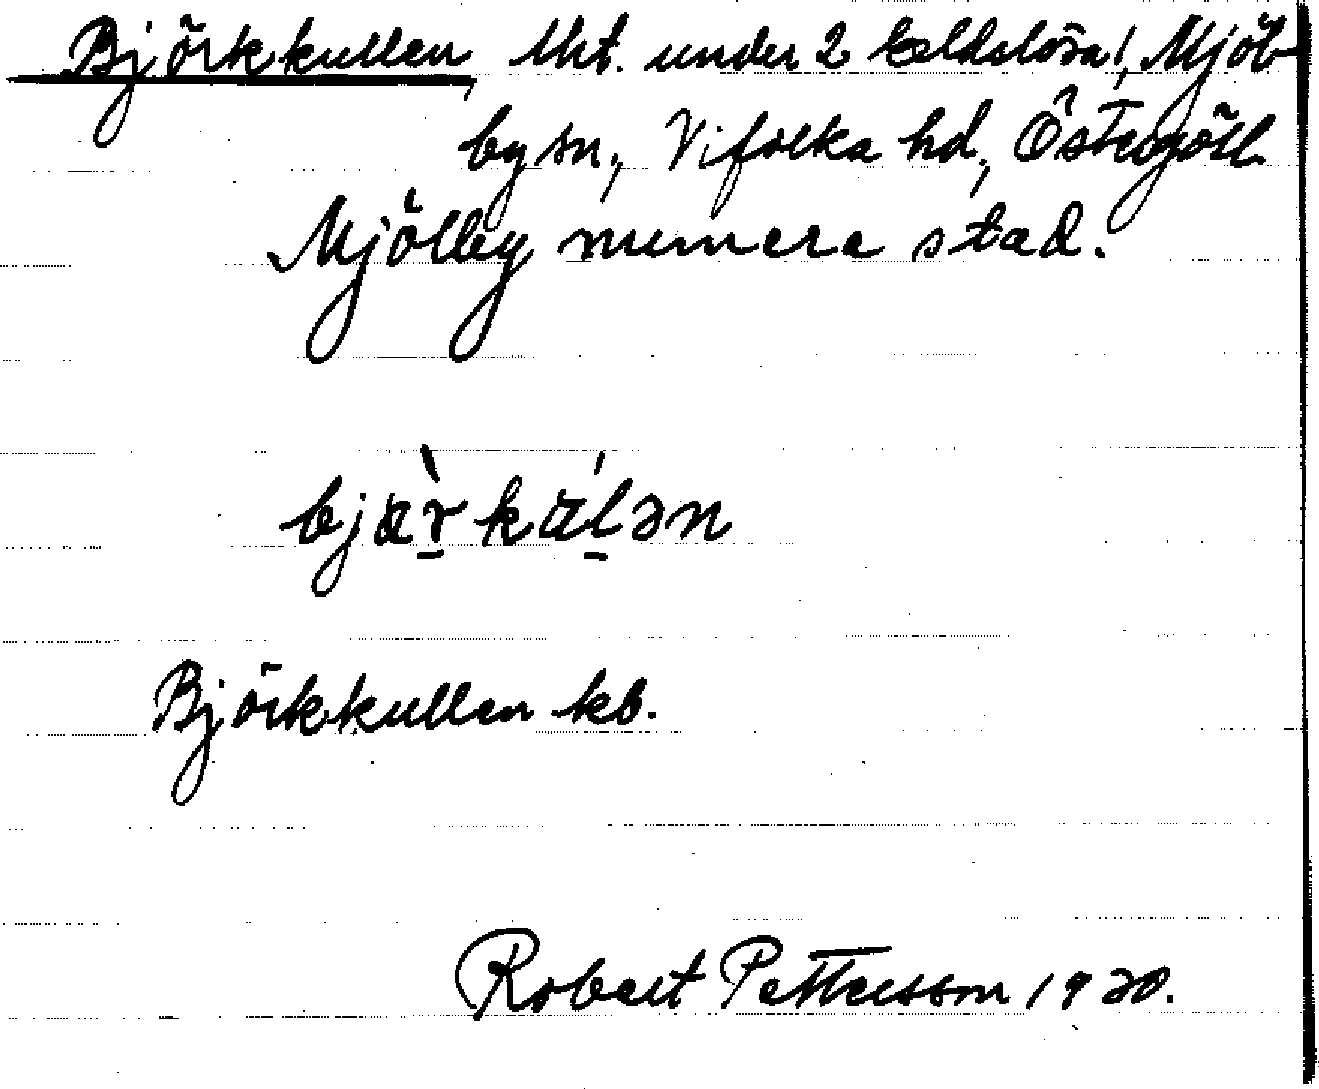 Björkkullen, lht. under 2 Eldslösa!, Mjöl-
by sn., Vifolka hd., Östergötl.
Mjölby numera stad.
bjæ̀rkúlən
Björkkullen kb.
Robert Pettersson 1920.